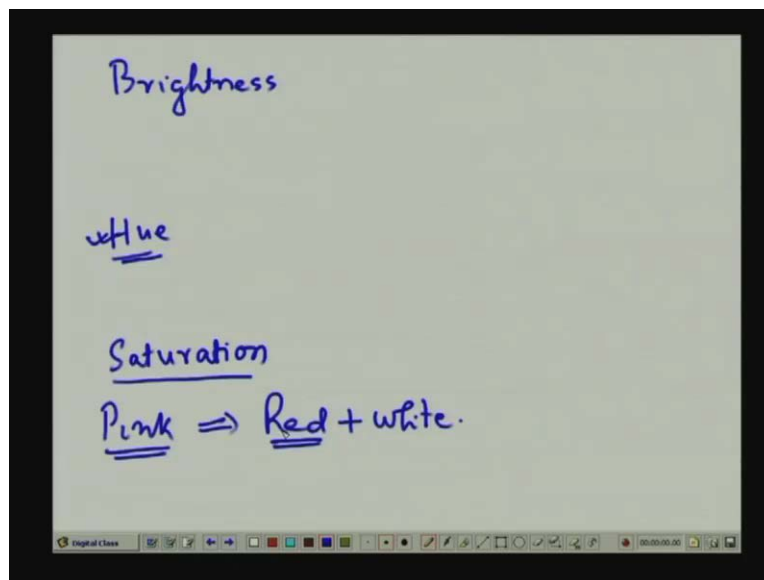 Brightness
Hue
Saturation
Pink ⇒ Red + white.
Digital Class 00:00:00.00